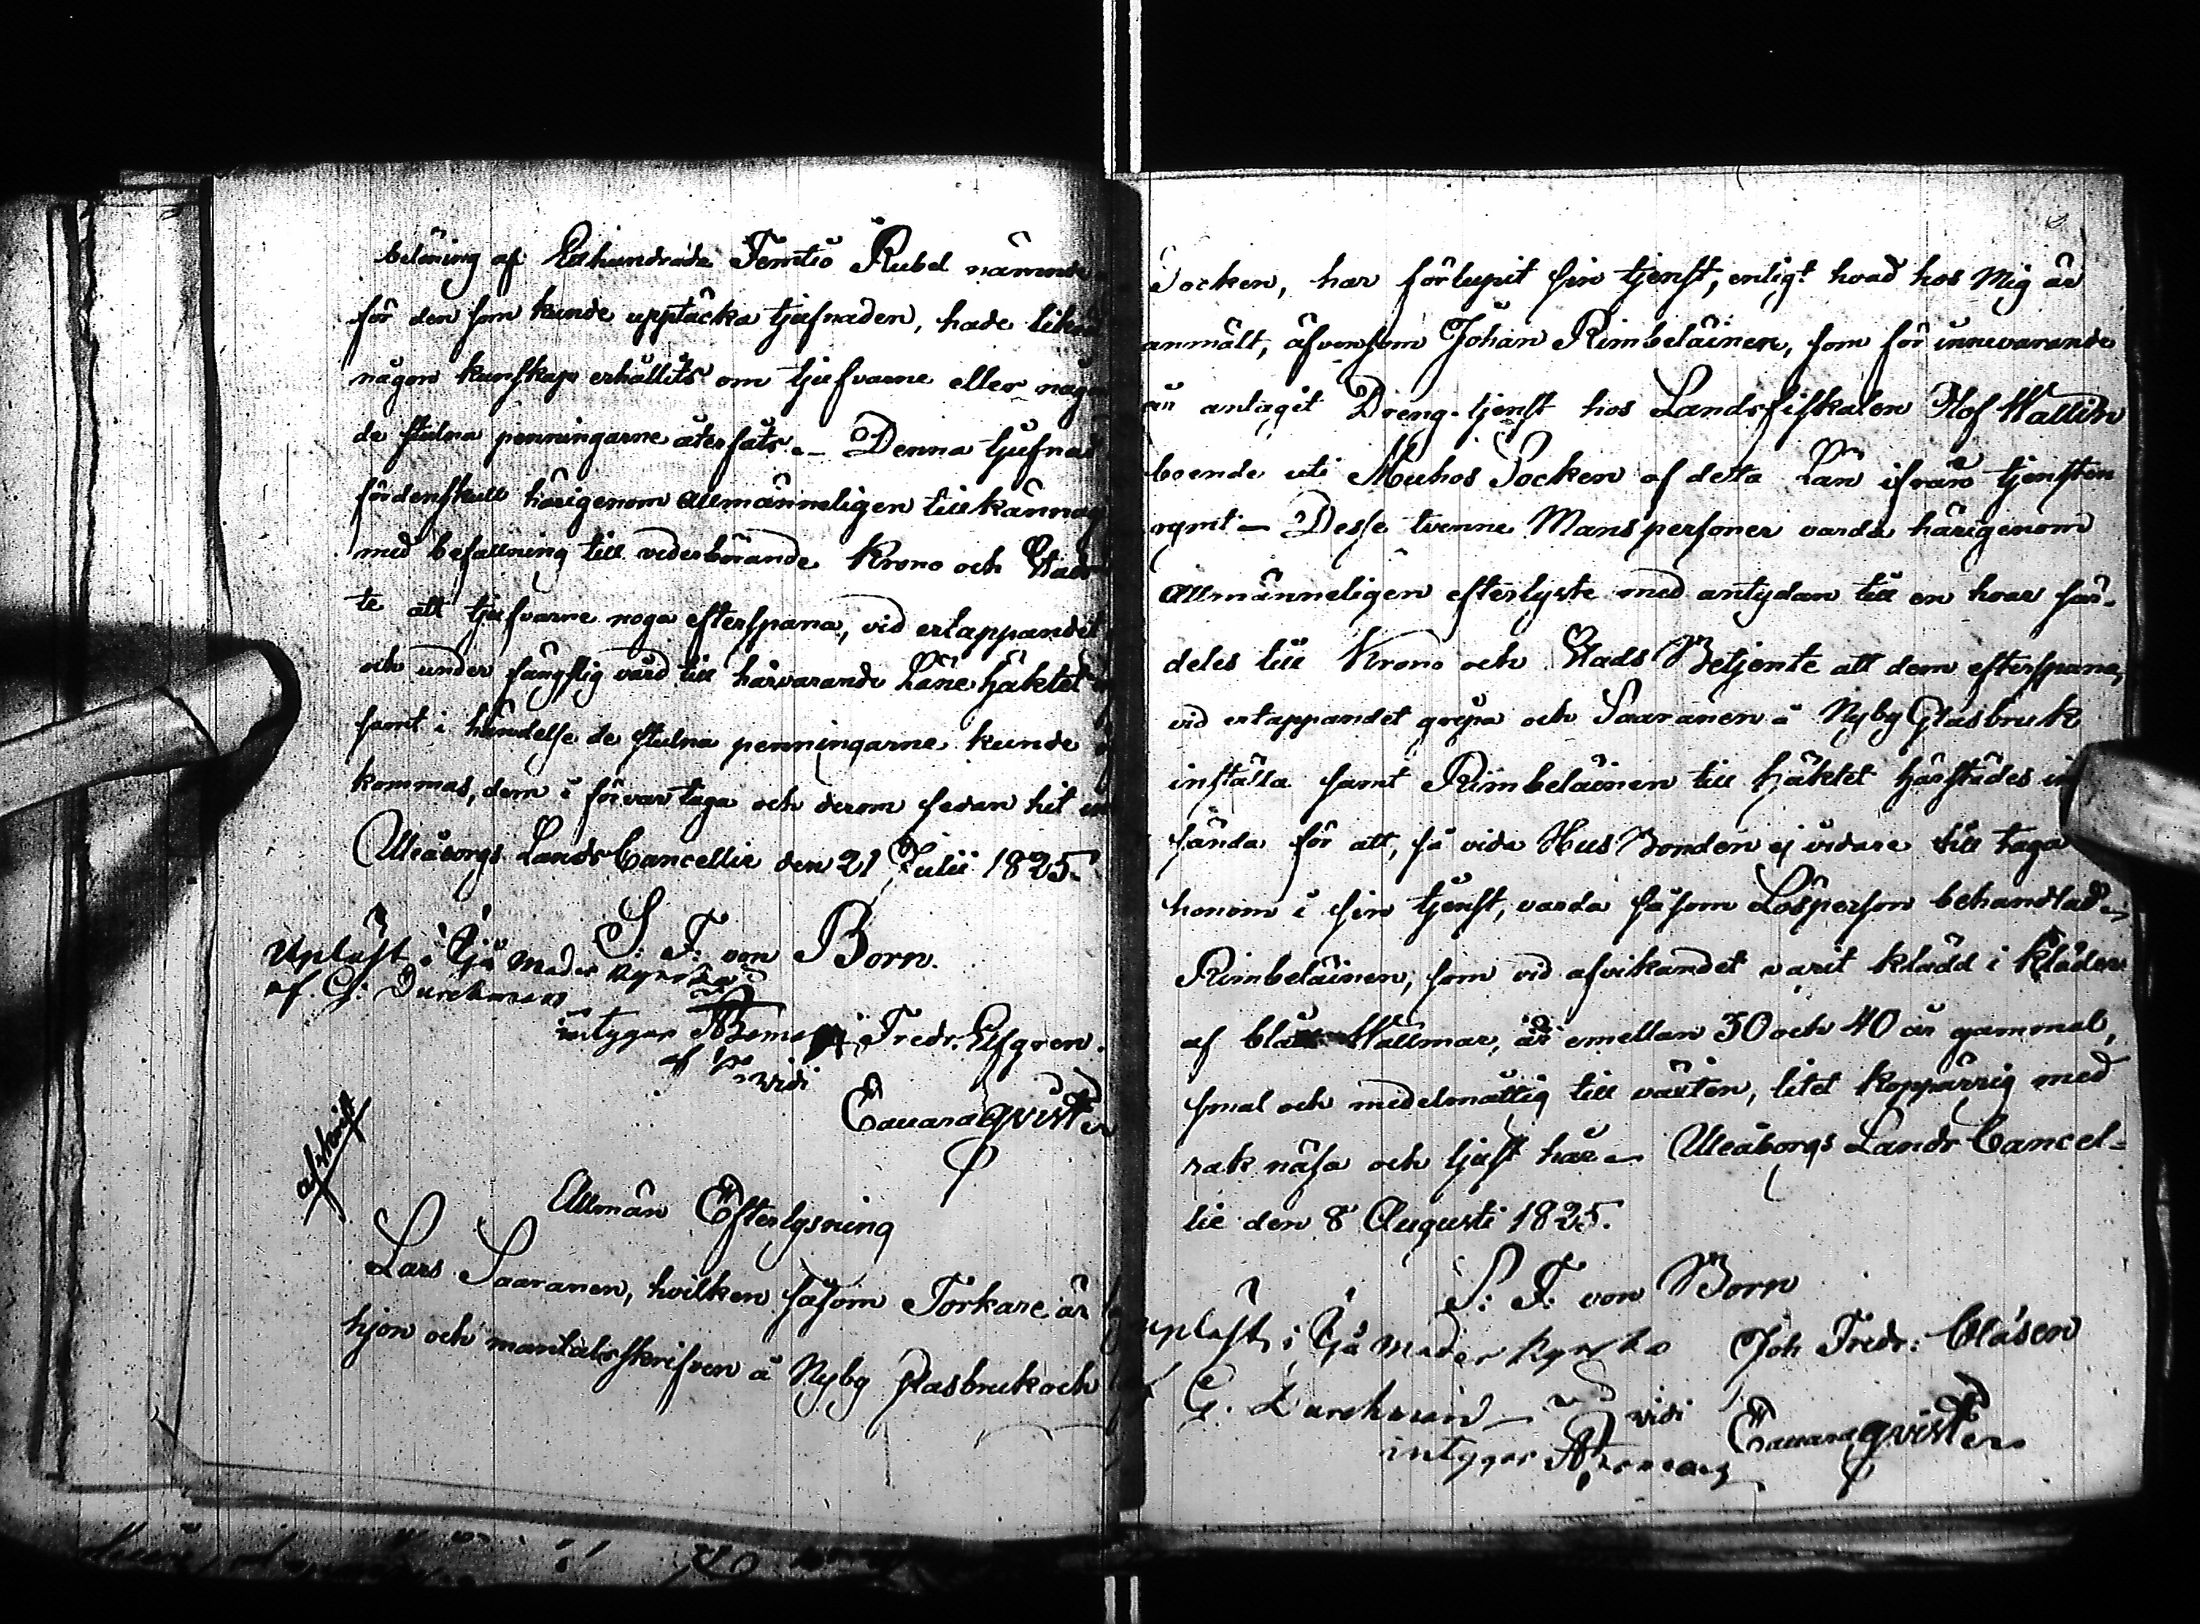 belöning af Etthundrade Femtio Rubel nämnde
för den som kunde upptäcka tjufnaden, hade
någon kunskap erhållits om tjufvarne eller någ
de stulna penningarne återfåts. Denna tjufnad
fördenskull härigenom Allmänneligen tillkännag
med befallning till vederbörande Krono och Stads
te att tjufvarne noga efterspana, vid ertappandet
och under fängslig vård till härvarande Länehäktet
samt i händelse de stulna penningarne kunde
kommas, dem i förvar taga och derom sedan hit
Uleåborgs Lands Cancellie den 21 Julii 1825.
S: F: von Born.
Upläst i
af G: Durchman
intygar
Fredr. Elfgren.
vidi
afskrift
Allmän Efterlysning
Lars Saaranen, hvilken såsom Torkare är
hjon och mantalsskrifven å Nyby Glasbruk och
Socken, har förlupit sin tjenst, enligt hvad hos Mig är
anmält, äfvensom Johan Rimbeläinen, som för innevarande
år antagit Dreng-tjenst hos Landsfiskalen Olof Wallin
boende uti Muhos Socken af deta Län ifrån tjensten
rymt – Desse tvenne Manspersoner varda härigenom
Allmänneligen efterlyste med antydan till en hvar sär-
deles till Krono och Stads Betjente att dem efterspana,
vid ertappandet gripa och Saaranen å Nyby Glasbruk
inställa samt Rimbeläinen till häktet härstädes in
sända för att, så vida Hus Bonden ej vidare till taga
honom i sin tjenst, varda såsom Lösperson behandlad
Rimbeläinen, som vid afvikandet varit klädd i kläder
af blå Wallmar, är emellan 30 och 40 år gammal,
smal och medelmåttig till växten, litet koppärrig med
rak näsa och ljust hår – Uleåborgs Lands Cancel-
lie den 8 Augusti 1825.
S: F: von Born
upläst i
Joh Fredr: Clasen
G. Durchman
vidi
intygar